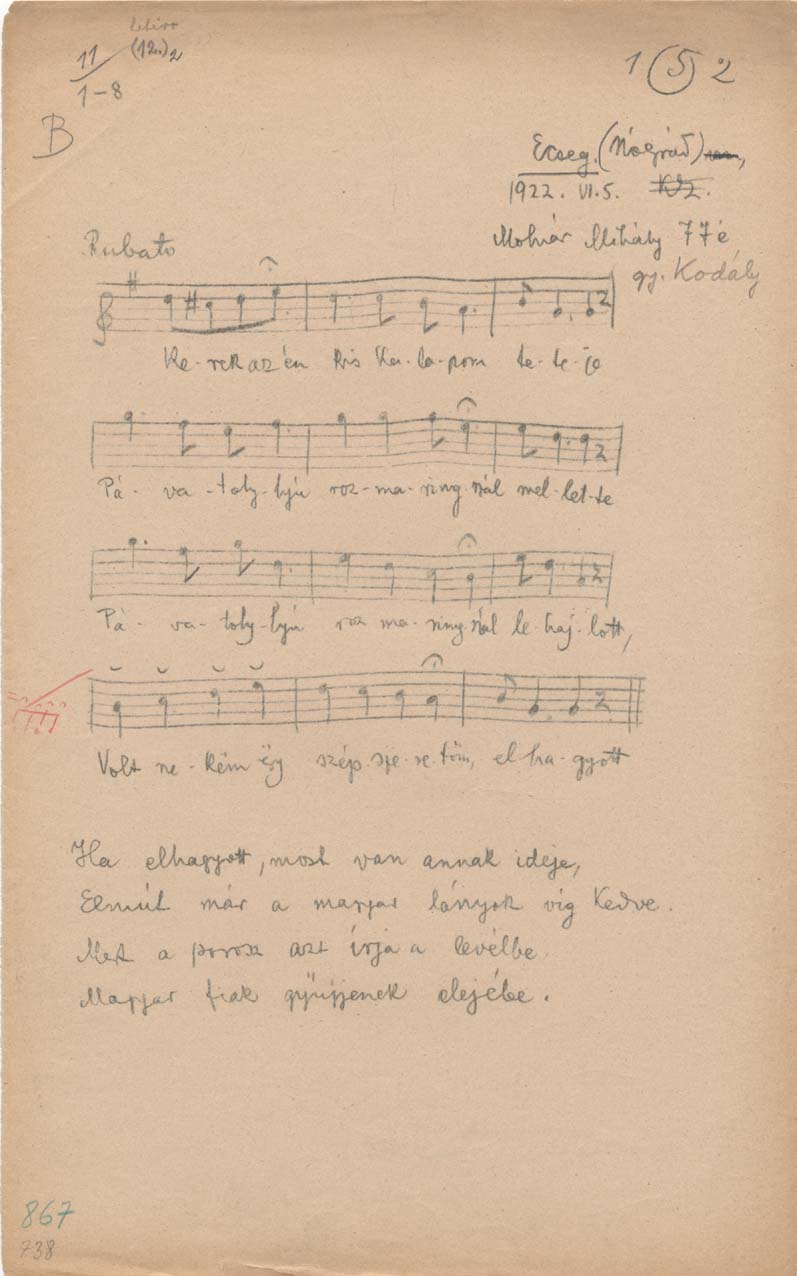 11 (12.)2
1-8
1 (5) 2
B
Ecseg. (Nógrád)
1922. VI. 5.
Molnár Mihály 77é
gy. Kodály
Rubato
Ke-rek az én kis ka-la-pom te-te-je
Pá-va-toly-lyú roz-ma-ring-szál mel-let-te
Pá-va-toly-lyú roz ma-ring-szál le haj-lott,
Volt ne-këm ëgy szép sze-re-tőm, el ha-gyott
Ha elhagyott, most van annak ideje,
Elmúlt már a magyar lányok víg kedve.
Mert a porosz azt írja a levélbe
Magyar fiak gyűjjenek elejébe.
867
738